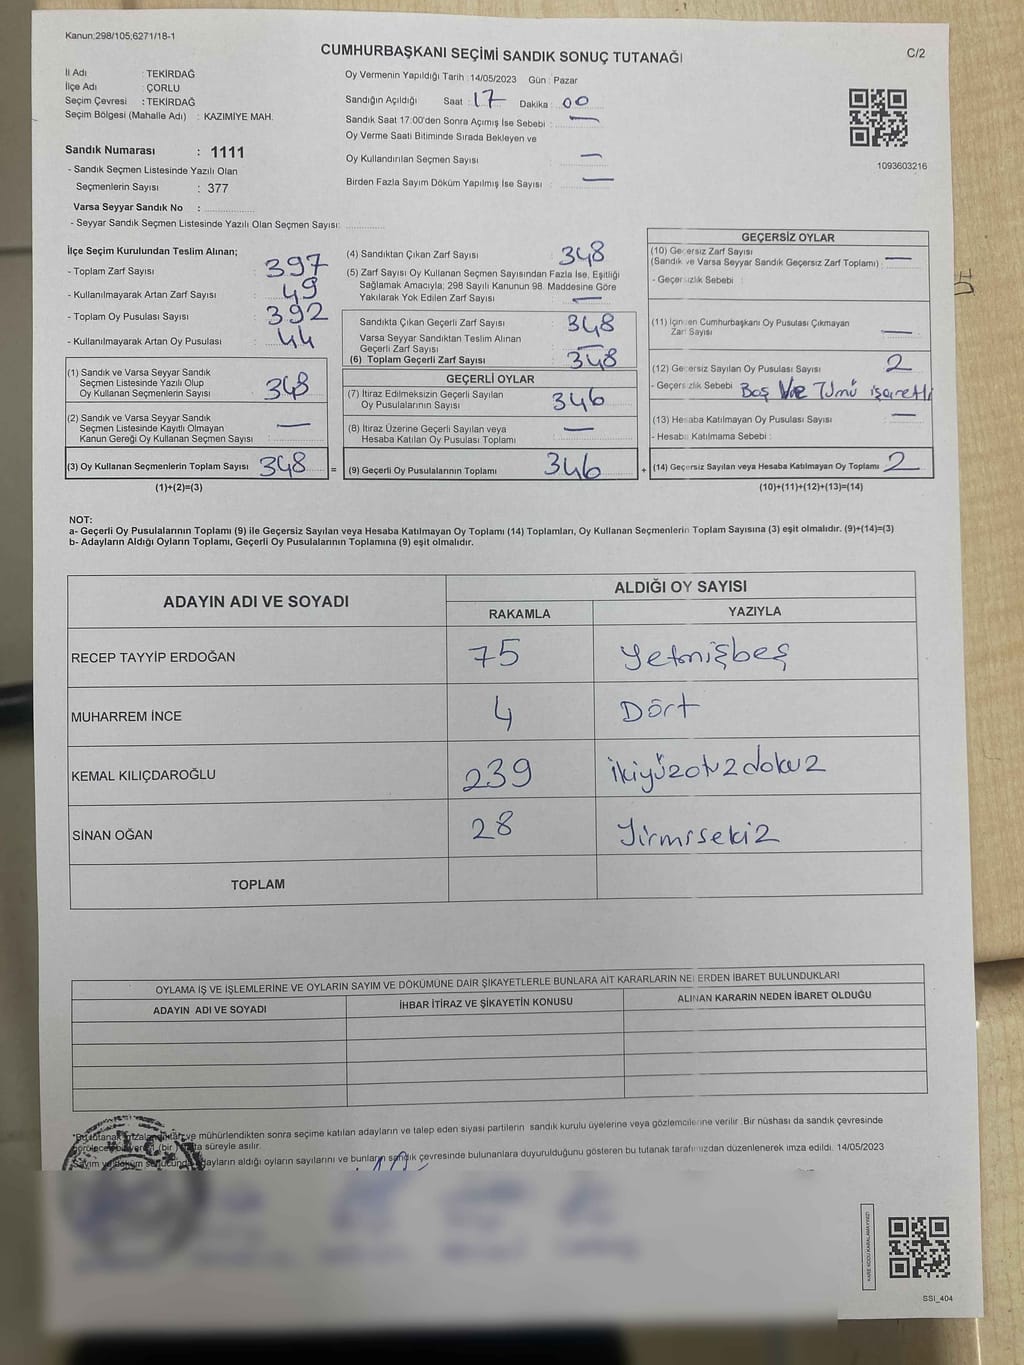 Kanun:298/105,6271/18-1
CUMHURBAŞKANI SEÇİMİ SANDIK SONUÇ TUTANAĞI
C/2
İl Adı : TEKİRDAĞ
İlçe Adı : ÇORLU
Seçim Çevresi : TEKİRDAĞ
Seçim Bölgesi (Mahalle Adı) : KAZIMİYE MAH.
Oy Vermenin Yapıldığı Tarih :14/05/2023 Gün : Pazar
Sandığın Açıldığı Saat : 17 Dakika : 00
Sandık Saat 17.00'den Sonra Açımış İse Sebebi : —
Oy Verme Saati Bitiminde Sırada Bekleyen ve
Oy Kullandırılan Seçmen Sayısı —
Birden Fazla Sayım Döküm Yapılmış İse Sayısı : —
1093603216
Sandık Numarası : 1111
- Sandık Seçmen Listesinde Yazılı Olan
Seçmenlerin Sayısı : 377
Varsa Seyyar Sandık No :
- Seyyar Sandık Seçmen Listesinde Yazılı Olan Seçmen Sayısı:
İlçe Seçim Kurulundan Teslim Alınan;
- Toplam Zarf Sayısı 397
- Kullanılmayarak Artan Zarf Sayısı 49
- Toplam Oy Pusulası Sayısı 392
- Kullanılmayarak Artan Oy Pusulası 44
(1) Sandık ve Varsa Seyyar Sandık
Seçmen Listesinde Yazılı Olup
Oy Kullanan Seçmenlerin Sayısı 348
(2) Sandık ve Varsa Seyyar Sandık
Seçmen Listesinde Kayıtlı Olmayan
Kanun Gereği Oy Kullanan Seçmen Sayısı —
(3) Oy Kullanan Seçmenlerin Toplam Sayısı 348 =
(1)+(2)=(3)
(4) Sandıktan Çıkan Zarf Sayısı 348
(5) Zarf Sayısı Oy Kullanan Seçmen Sayısından Fazla İse, Eşitliği
Sağlamak Amacıyla; 298 Sayılı Kanunun 98. Maddesine Göre
Yakılarak Yok Edilen Zarf Sayısı —
Sandıkta Çıkan Geçerli Zarf Sayısı 348
Varsa Seyyar Sandıktan Teslim Alınan
Geçerli Zarf Sayısı —
(6) Toplam Geçerli Zarf Sayısı 348
GEÇERLİ OYLAR
(7) İtiraz Edilmeksizin Geçerli Sayılan
Oy Pusulalarının Sayısı 346
(8) İtiraz Üzerine Geçerli Sayılan veya
Hesaba Katılan Oy Pusulası Toplamı —
(9) Geçerli Oy Pusulalarının Toplamı 346 +
GEÇERSİZ OYLAR
(10) Geçersiz Zarf Sayısı
(Sandık ve Varsa Seyyar Sandık Geçersiz Zarf Toplamı) : —
- Geçersizlik Sebebi
(11) İçinden Cumhurbaşkanı Oy Pusulası Çıkmayan
Zarf Sayısı —
(12) Geçersiz Sayılan Oy Pusulası Sayısı 2
- Geçersizlik Sebebi Boş Ve Tümü işaretli
(13) Hesaba Katılmayan Oy Pusulası Sayısı —
- Hesaba Katılmama Sebebi :
(14) Geçersiz Sayılan veya Hesaba Katılmayan Oy Toplamı 2
(10)+(11)+(12)+(13)=(14)
NOT:
a- Geçerli Oy Pusulalarının Toplamı (9) ile Geçersiz Sayılan veya Hesaba Katılmayan Oy Toplamı (14) Toplamları, Oy Kullanan Seçmenlerin Toplam Sayısına (3) eşit olmalıdır. (9)+(14)=(3)
b- Adayların Aldığı Oyların Toplamı, Geçerli Oy Pusulalarının Toplamına (9) eşit olmalıdır.
ADAYIN ADI VE SOYADI
ALDIĞI OY SAYISI
RAKAMLA YAZIYLA
RECEP TAYYİP ERDOĞAN 75 Yetmişbeş
MUHARREM İNCE 4 Dört
KEMAL KILIÇDAROĞLU 239 ikiyüzotuzdokuz
SİNAN OĞAN 28 Yirmisekiz
TOPLAM
OYLAMA İŞ VE İŞLEMLERİNE VE OYLARIN SAYIM VE DÖKÜMÜNE DAİR ŞİKAYETLERLE BUNLARA AİT KARARLARIN NELERDEN İBARET BULUNDUKLARI
ADAYIN ADI VE SOYADI
İHBAR İTİRAZ VE ŞİKAYETİN KONUSU
ALINAN KARARIN NEDEN İBARET OLDUĞU
ve mühürlendikten sonra seçime katılan adayların ve talep eden siyasi partilerin sandık kurulu üyelerine veya gözlemcilerine verilir. Bir nüshası da sandık çevresinde
süreyle asılır.
adayların aldığı oyların sayılarını ve bunların sandık çevresinde bulunanlara duyurulduğunu gösteren bu tutanak tarafımızdan düzenlenerek imza edildi. 14/05/2023
SSI_404